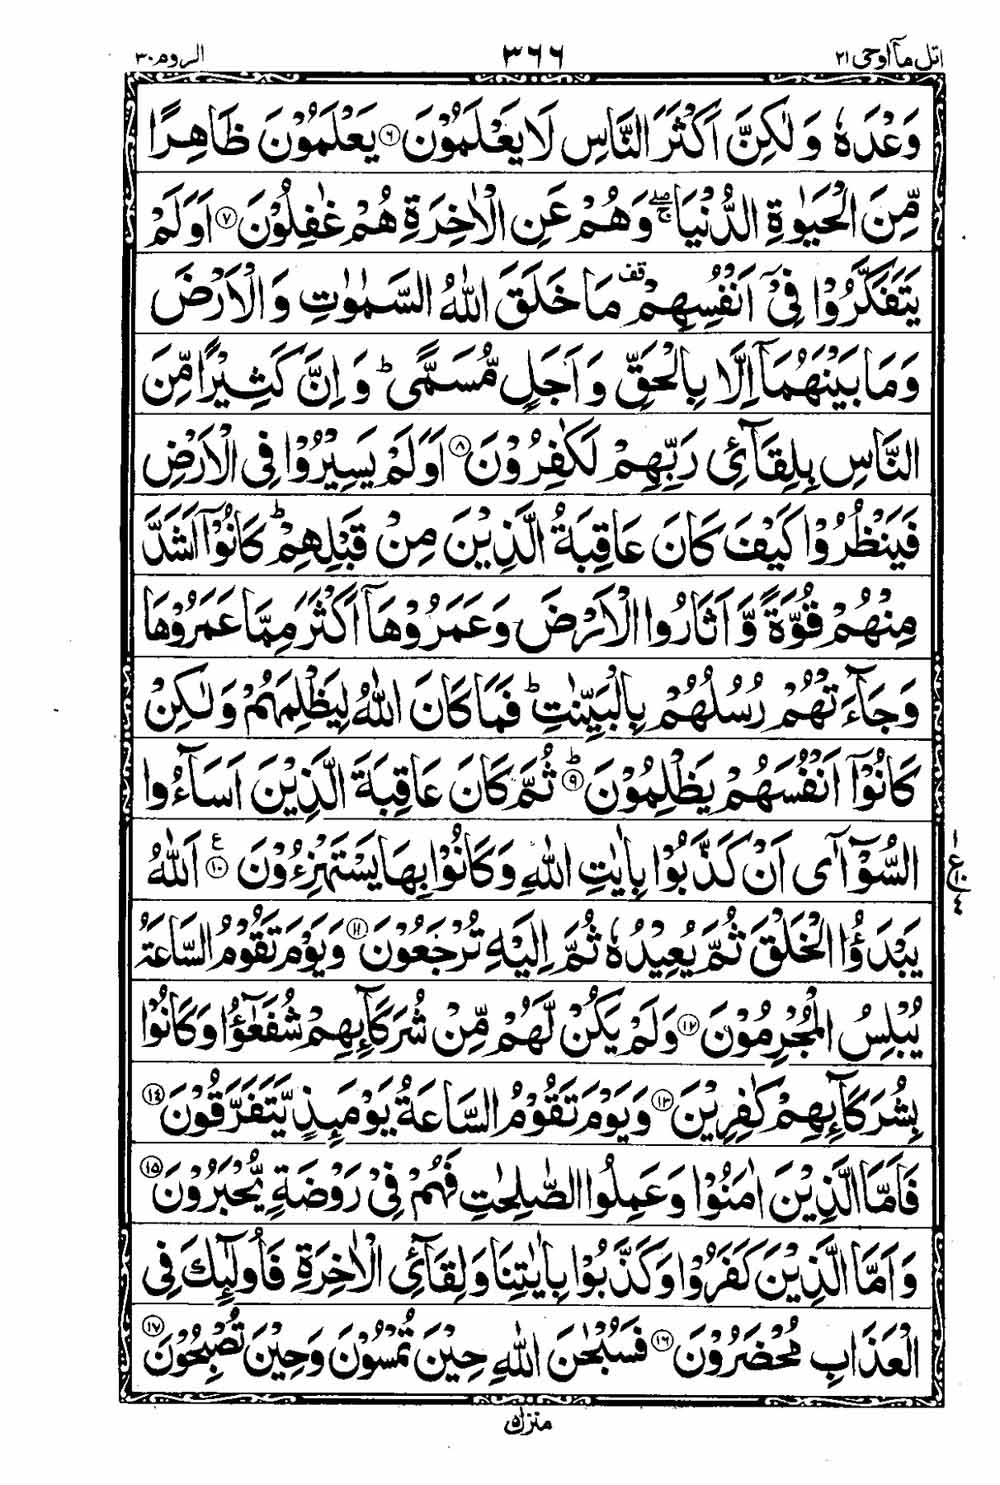 اتل مآ اوحی ۲۱ ۳۶۶ الروم ۳۰
وَعْدَهٗ وَلٰكِنَّ اَكْثَرَ النَّاسِ لَا يَعْلَمُوْنَ ۶ يَعْلَمُوْنَ ظَاهِرًا
مِّنَ الْحَيٰوةِ الدُّنْيَا ۖۚ وَهُمْ عَنِ الْاٰخِرَةِ هُمْ غٰفِلُوْنَ ۷ اَوَلَمْ
يَتَفَكَّرُوْا فِيْٓ اَنْفُسِهِمْ قف مَا خَلَقَ اللّٰهُ السَّمٰوٰتِ وَالْاَرْضَ
وَمَا بَيْنَهُمَآ اِلَّا بِالْحَقِّ وَاَجَلٍ مُّسَمًّى ؕ وَاِنَّ كَثِيْرًا مِّنَ
النَّاسِ بِلِقَآئِ رَبِّهِمْ لَكٰفِرُوْنَ ۸ اَوَلَمْ يَسِيْرُوْا فِي الْاَرْضِ
فَيَنْظُرُوْا كَيْفَ كَانَ عَاقِبَةُ الَّذِيْنَ مِنْ قَبْلِهِمْ ؕ كَانُوْٓا اَشَدَّ
مِنْهُمْ قُوَّةً وَّاَثَارُوا الْاَرْضَ وَعَمَرُوْهَآ اَكْثَرَ مِمَّا عَمَرُوْهَا
وَجَآءَتْهُمْ رُسُلُهُمْ بِالْبَيِّنٰتِ ؕ فَمَا كَانَ اللّٰهُ لِيَظْلِمَهُمْ وَلٰكِنْ
كَانُوْٓا اَنْفُسَهُمْ يَظْلِمُوْنَ ؕ ۹ ثُمَّ كَانَ عَاقِبَةَ الَّذِيْنَ اَسَآءُوا
السُّوْٓآٰى اَنْ كَذَّبُوْا بِاٰيٰتِ اللّٰهِ وَكَانُوْا بِهَا يَسْتَهْزِءُوْنَ ع ۱۰ اَللّٰهُ
يَبْدَؤُا الْخَلْقَ ثُمَّ يُعِيْدُهٗ ثُمَّ اِلَيْهِ تُرْجَعُوْنَ ۱۱ وَيَوْمَ تَقُوْمُ السَّاعَةُ
يُبْلِسُ الْمُجْرِمُوْنَ ۱۲ وَلَمْ يَكُنْ لَّهُمْ مِّنْ شُرَكَآئِهِمْ شُفَعٰٓؤُا وَكَانُوْا
بِشُرَكَآئِهِمْ كٰفِرِيْنَ ۱۳ وَيَوْمَ تَقُوْمُ السَّاعَةُ يَوْمَئِذٍ يَّتَفَرَّقُوْنَ ۱۴
فَاَمَّا الَّذِيْنَ اٰمَنُوْا وَعَمِلُوا الصّٰلِحٰتِ فَهُمْ فِيْ رَوْضَةٍ يُّحْبَرُوْنَ ۱۵
وَاَمَّا الَّذِيْنَ كَفَرُوْا وَكَذَّبُوْا بِاٰيٰتِنَا وَلِقَآئِ الْاٰخِرَةِ فَاُولٰٓئِكَ فِي
الْعَذَابِ مُحْضَرُوْنَ ۱۶ فَسُبْحٰنَ اللّٰهِ حِيْنَ تُمْسُوْنَ وَحِيْنَ تُصْبِحُوْنَ ۱۷
منزل ۵